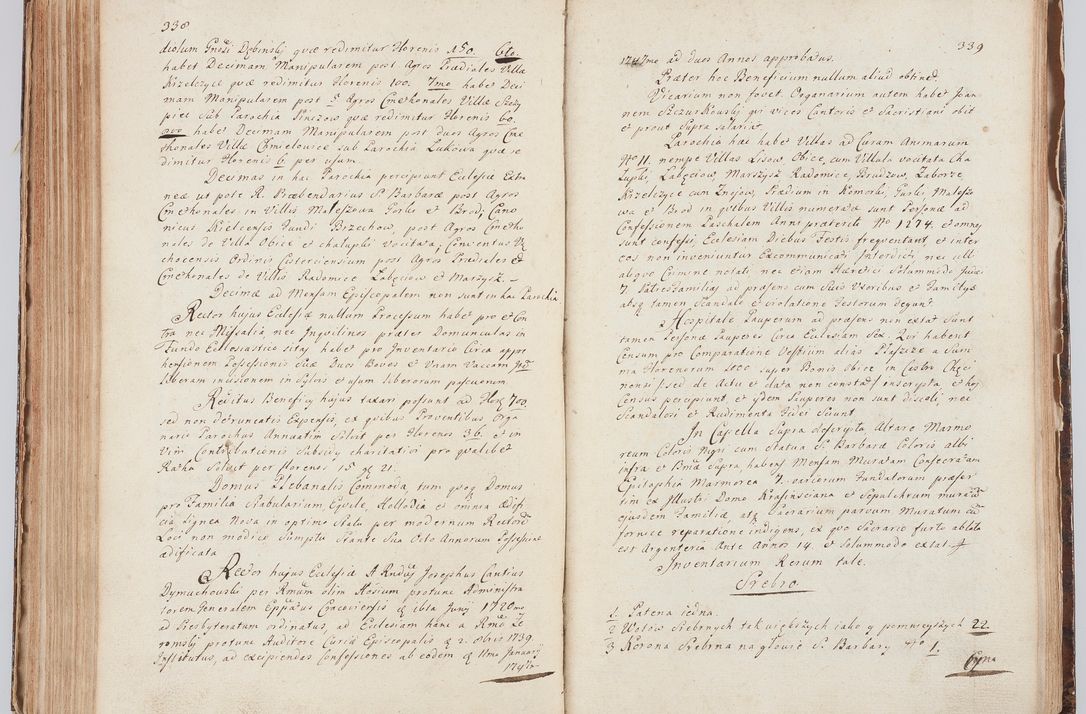 338
diolum Gnosi Dębinsky quæ redimitur Florenis 150. 6to.
habet Decimam Manipularem post Agros Prædiales Villæ
Krzelczyce quæ redimitur Florenis 100. 7mo habet Deci
mam Manipularem post 5 Agros Cmethonales Villæ
piec sub Parochia Pinczow quæ redimitur Florenis 60.
habet Decimam Manipularem post duos Agros Cme
thonales Villæ Chmielowice sub Parochia Lukowa quæ re
dimitur Florenis 6 per usum.
Decimas in hac Parochia percipiunt Ecclesiæ Extra
neæ ut pote R. Præbendarius S. Barbaræ post Agros
Cmethonales in Villis Maleszowa Gorki et Brody, Cano
nicus Kielcensis Fundi Brzechow, post Agros Cmetho
nales de Villa Obice et chalupki vocitata; Conventus
chocensis Ordinis Cisterciensium post Agros Prædiales et
Cmethonales de Villis Radomice Labęciow et Marzysz. –
Decimæ ad Mensam Episcopalem non sunt in hac Parochia.
Rector hujus Ecclesiæ nullum Processum habet pro et Con
tra nec Missalia nec Inquilinos præter Domunculas in
Fundo Ecclesiastico sitas habet pro Inventario Circa appre
hensionem Possessionis Suæ Duos Boves et Unam Vaccam
liberam incisionem in Sylvis et usum liberorum pascuorum.
Reditus Beneficy hujus taxari possunt ad 700
sed non detruncatis Expensis, ex quibus Proventibus Ordi
nario Parochus Annuatim Solvit per Florenos 36. et in
Vim Contributionis Subsidy charitativi pro qualibet
Ratha Solvit per florenos 15 21.
Domus Plebanalis Commoda, tum quoq Domus
pro Familia Stabularium Equile, Hollodia et omnia Ædifi
cia lignea Nova in optimo Statu per modernum Rectorem
Loci non modico Sumptu Stante Sua Octo Annorum Possessione
ædificata.
Rector hujus Ecclesiæ A. Rndus Josephus Cantius
Dymuchowski per Rmum olim Hosium protunc Administra
torem Generalem Eppatus Cracoviensis ibta Juny 1720mo
ad Presbyteratum ordinatus, ad Ecclesiam hanc a Rmo Ze
romsky protunc Auditore Curiæ Episcopalis 2. 8bris 1739.
Institutus, ad excipiendas Confessiones ab eodem 11mo January
339
ad duos Annos approbatus.
Præter hoc Beneficium nullum aliud obtinet.
Vicarium non fovet. Organarium autem habet Joan
nem Szczurkowsky qui vices Cantoris et Sacristiani obit
et prout Supra Salariat.
Parochia hæc habet Villas ad Curam Animarum
No 11. nempe Villas Lisow, Obice, cum Villula vocitata Cha
lupki, Labęciow, Marszysz Radomice, Brudzow, Zaborze,
Krzelczyce cum Znojow, Prædium in Komorki Gorki, Malesz
wa et Brod in quibus Villis numeratæ sunt Personæ ad
Confessionem Paschalem Anni præteriti No 1274. et omnes
sunt confessi, Ecclesiam Diebus Festis frequentant, et inter
eos non inveniuntur Excommunicati Interdicti, nec ullo
aliquo Crimine notati nec etiam Hæretici Solummodo
7 Patresfamilias ad præsens cum Suis Uxoribus et Familys
absq tamen Scandalo et violatione Festorum degunt.
Hospitale Pauperum ad præsens non extat Sunt
tamen Personæ Pauperes Circa Ecclesiam Sex Qui habent
Censum pro Comparatione Vestium alias Płaszcze a Sum
ma Florenorum 1000 super Bonis Obice in Castro Chęci
nensi /sed de Actu et data non constat/ inscripta, et hoc
Census percipiunt, et ydem Pauperes non sunt discoli, nec
Scandalosi et Rudimenta Fidei Sciunt.
In Capella Supra descripta Altare Marmo
reum Coloris Nigri cum Statua S. Barbaræ Coloris albi
infra et Supra, habens Mensam Muratam Consecratam
Epitaphia Marmorea 7. variorum Fundatorum præser
tim ex Illustri Domo Krasinsciana et Sepulchrum muratum
ejusdem Familiæ, atq Sacrarium parvum Muratum cum
fornice reparatione indigens, ex quo Sacrario furto ablata
est Argenteria Ante Annos 14. et Solummodo extat
Inventarium Rerum tale.
Srebro
1. Patena iedna.
2 Wotow Srebrnych tak większych iako y pomnieyszych 22.
3 Korona Srebrna na głowie S. Barbary No 1.